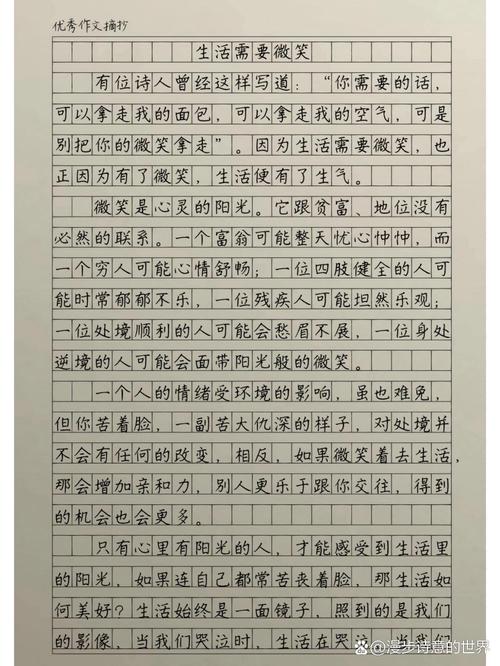 优秀作文摘抄
生活需要微笑
有位诗人曾经这样写道：“你需要的话，
可以拿走我的面包，可以拿走我的空气，可是
别把你的微笑拿走”。因为生活需要微笑，也
正因为有了微笑，生活便有了生气。
微笑是心灵的阳光。它跟贫富、地位没有
必然的联系。一个富翁可能整天忧心忡忡，而
一个穷人可能心情舒畅；一位四肢健全的人可
能时常郁郁不乐，一位残疾人可能坦然乐观；
一位处境顺利的人可能会愁眉不展，一位身处
逆境的人可能会面带阳光般的微笑。
一个人的情绪受环境的影响，虽也难免，
但你苦着脸，一副苦大仇深的样子，对处境并
不会有任何的改变，相反，如果微笑着去生活，
那会增加亲和力，别人更乐于跟你交往，得到
的机会也会更多。
只有心里有阳光的人，才能感受到生活里
的阳光，如果连自己都常苦丧着脸，那生活如
何美好？生活始终是一面镜子，照到的是我们
的影像，当我们哭泣时，生活在哭泣，当我们
@漫步诗意的世界